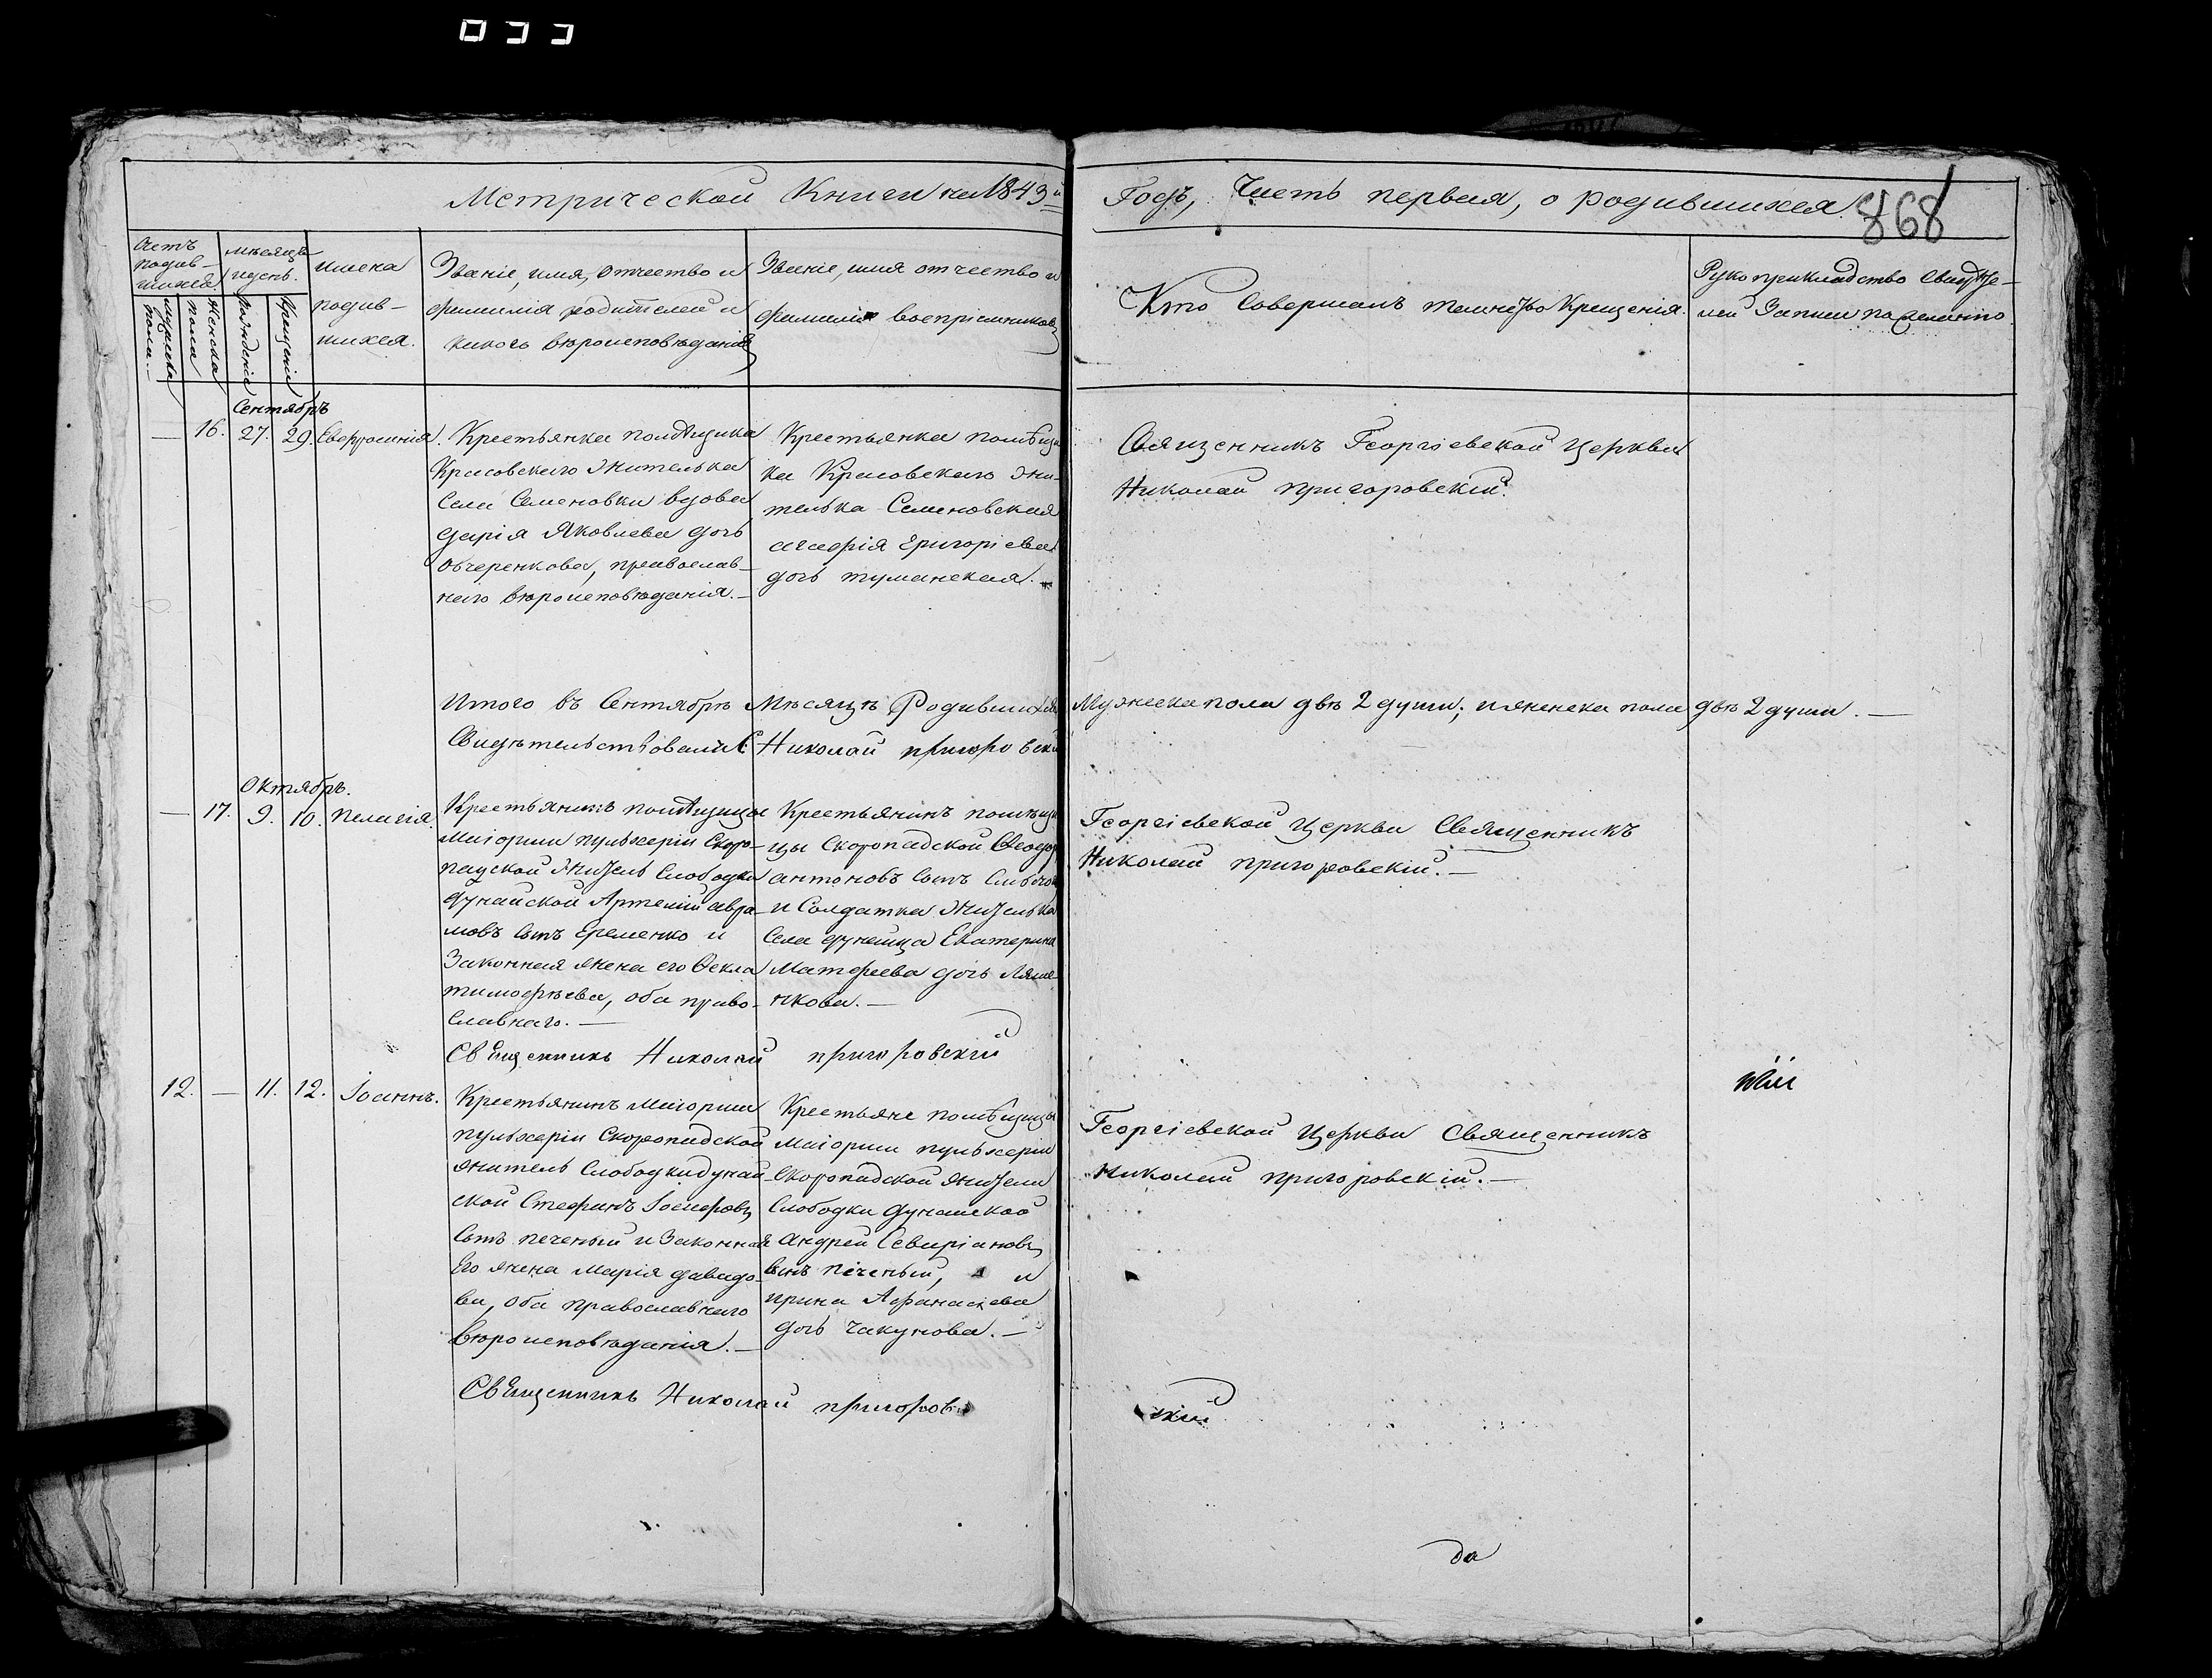 Метрической Книги на 1843й
Годъ, Часть первая, о родившихся.
868
Счетъ родив-
шихся.
мужеска пола.
Женска пола
мѣсяцъ и день.
рожденіе
Крещеніе
имена
родив-
шихся.
Званіе, имя, отчество и
фамилія родителей и
какого вѣроисповѣданія
Званіе, имя отчество и
фамилія воспріемниковъ
Кто Совершалъ таинство Крещенія.
Рукоприкладство Свидѣте-
лей Записи по желанію
Сентябрь
— 16. 27. 29. Евфросинія.
Крестьянка помѣщика
Красовскаго жителька
Села Семеновки вдова
дарія Яковлева дочь
Овчеренкова, православ-
наго вѣроисповѣданія.—
Крестьянка помѣщи
ка Красовскаго жи-
телька Семеновская
агафія Григоріева
дочь туманская.
Священникъ Георгіевской Церкви
Николай пригоровскій.
Итого въ Сентябрѣ Мѣсяцѣ Родившихся Мужеска пола двѣ 2 души; и женска пола двѣ 2 души.—
Свидѣтельствовалъ С Николай пригоровскі
Октябрь.
— 17. 9. 10. пелагія.
Крестьянинъ помѣщицы
Маіорши пульхеріи Скоро-
падской Житель Слободки
дунайской Артемій авра-
мовъ сынъ Еременко и
Законная жена его Ѳекла
тимофѣева, оба право-
славнаго.—
Крестьянинъ помѣщи
цы Скоропадской Ѳеодор
антоновъ сынъ
и Солдатка Жителька
Села дунайца Екатерина
Матфеева дочь Ляше-
нкова.—
Георгіевской Церкви Священникъ
Николай пригоровскій.—
Священникъ Николай пригоровскій
12. — 11. 12. Іоаннъ.
Крестьянинъ Маіорши
пульхеріи Скоропадской
житель Слободки дунай
ской Стефанъ Іосифовъ
сынъ печеный и Законная
Его жена Марія давидо-
ва, оба православнаго
вѣроисповѣданія.—
Крестьяне помѣщицы
Маіорши пульхеріи
Скоропадской жители
Слободки дунайской
Андрей Севиріановъ
сынъ печеный, и
ирина Афанасіева
дочь Чакунова.—
Георгіевской Церкви Священникъ
николай пригоровскій.—
Священникъ Николай пригоров
скій
да